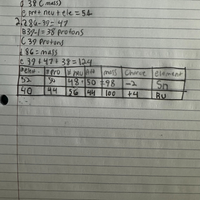 38 (mass)
B prot neu + ele = 54
2. a 86-39 = 47
B 39-1 = 38 protons
C 39 protons
86 = mass
E 39 + 47 + 38 = 124
mass Charge element
52 48 50 98 -2 Sn
40 44 56 44 100 +4 Ru